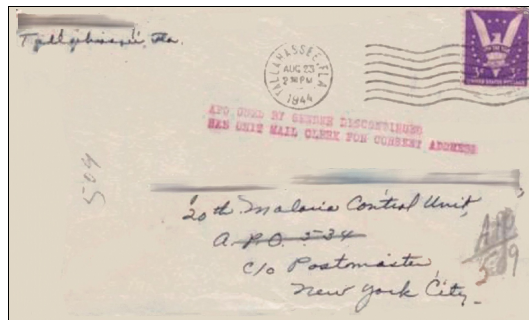 Tallahassee, Fla.
TALLAHASSEE, FLA.
AUG 23
2 PM
1944
3¢ 3¢
UNITED STATES POSTAGE
APO USED BY SENDER DISCONTINUED
HAS UNIT MAIL CLERK FOR CURRENT ADDRESS
509
20th Malaria Control Unit,
A.P.O. 534
c/o Postmaster,
New York City-
APO
509